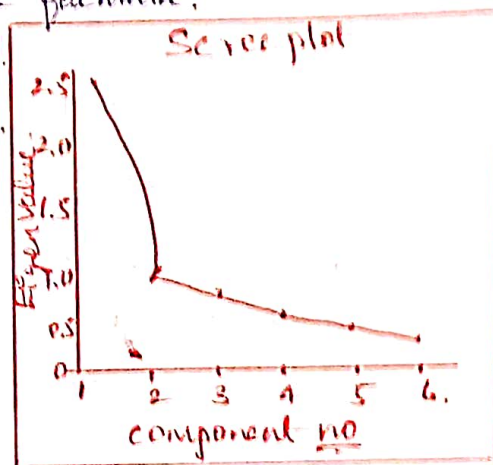 Scree plot
Eigen value
2.5
2.0
1.5
1.0
0.5
0
1 2 3 4 5 6.
component no